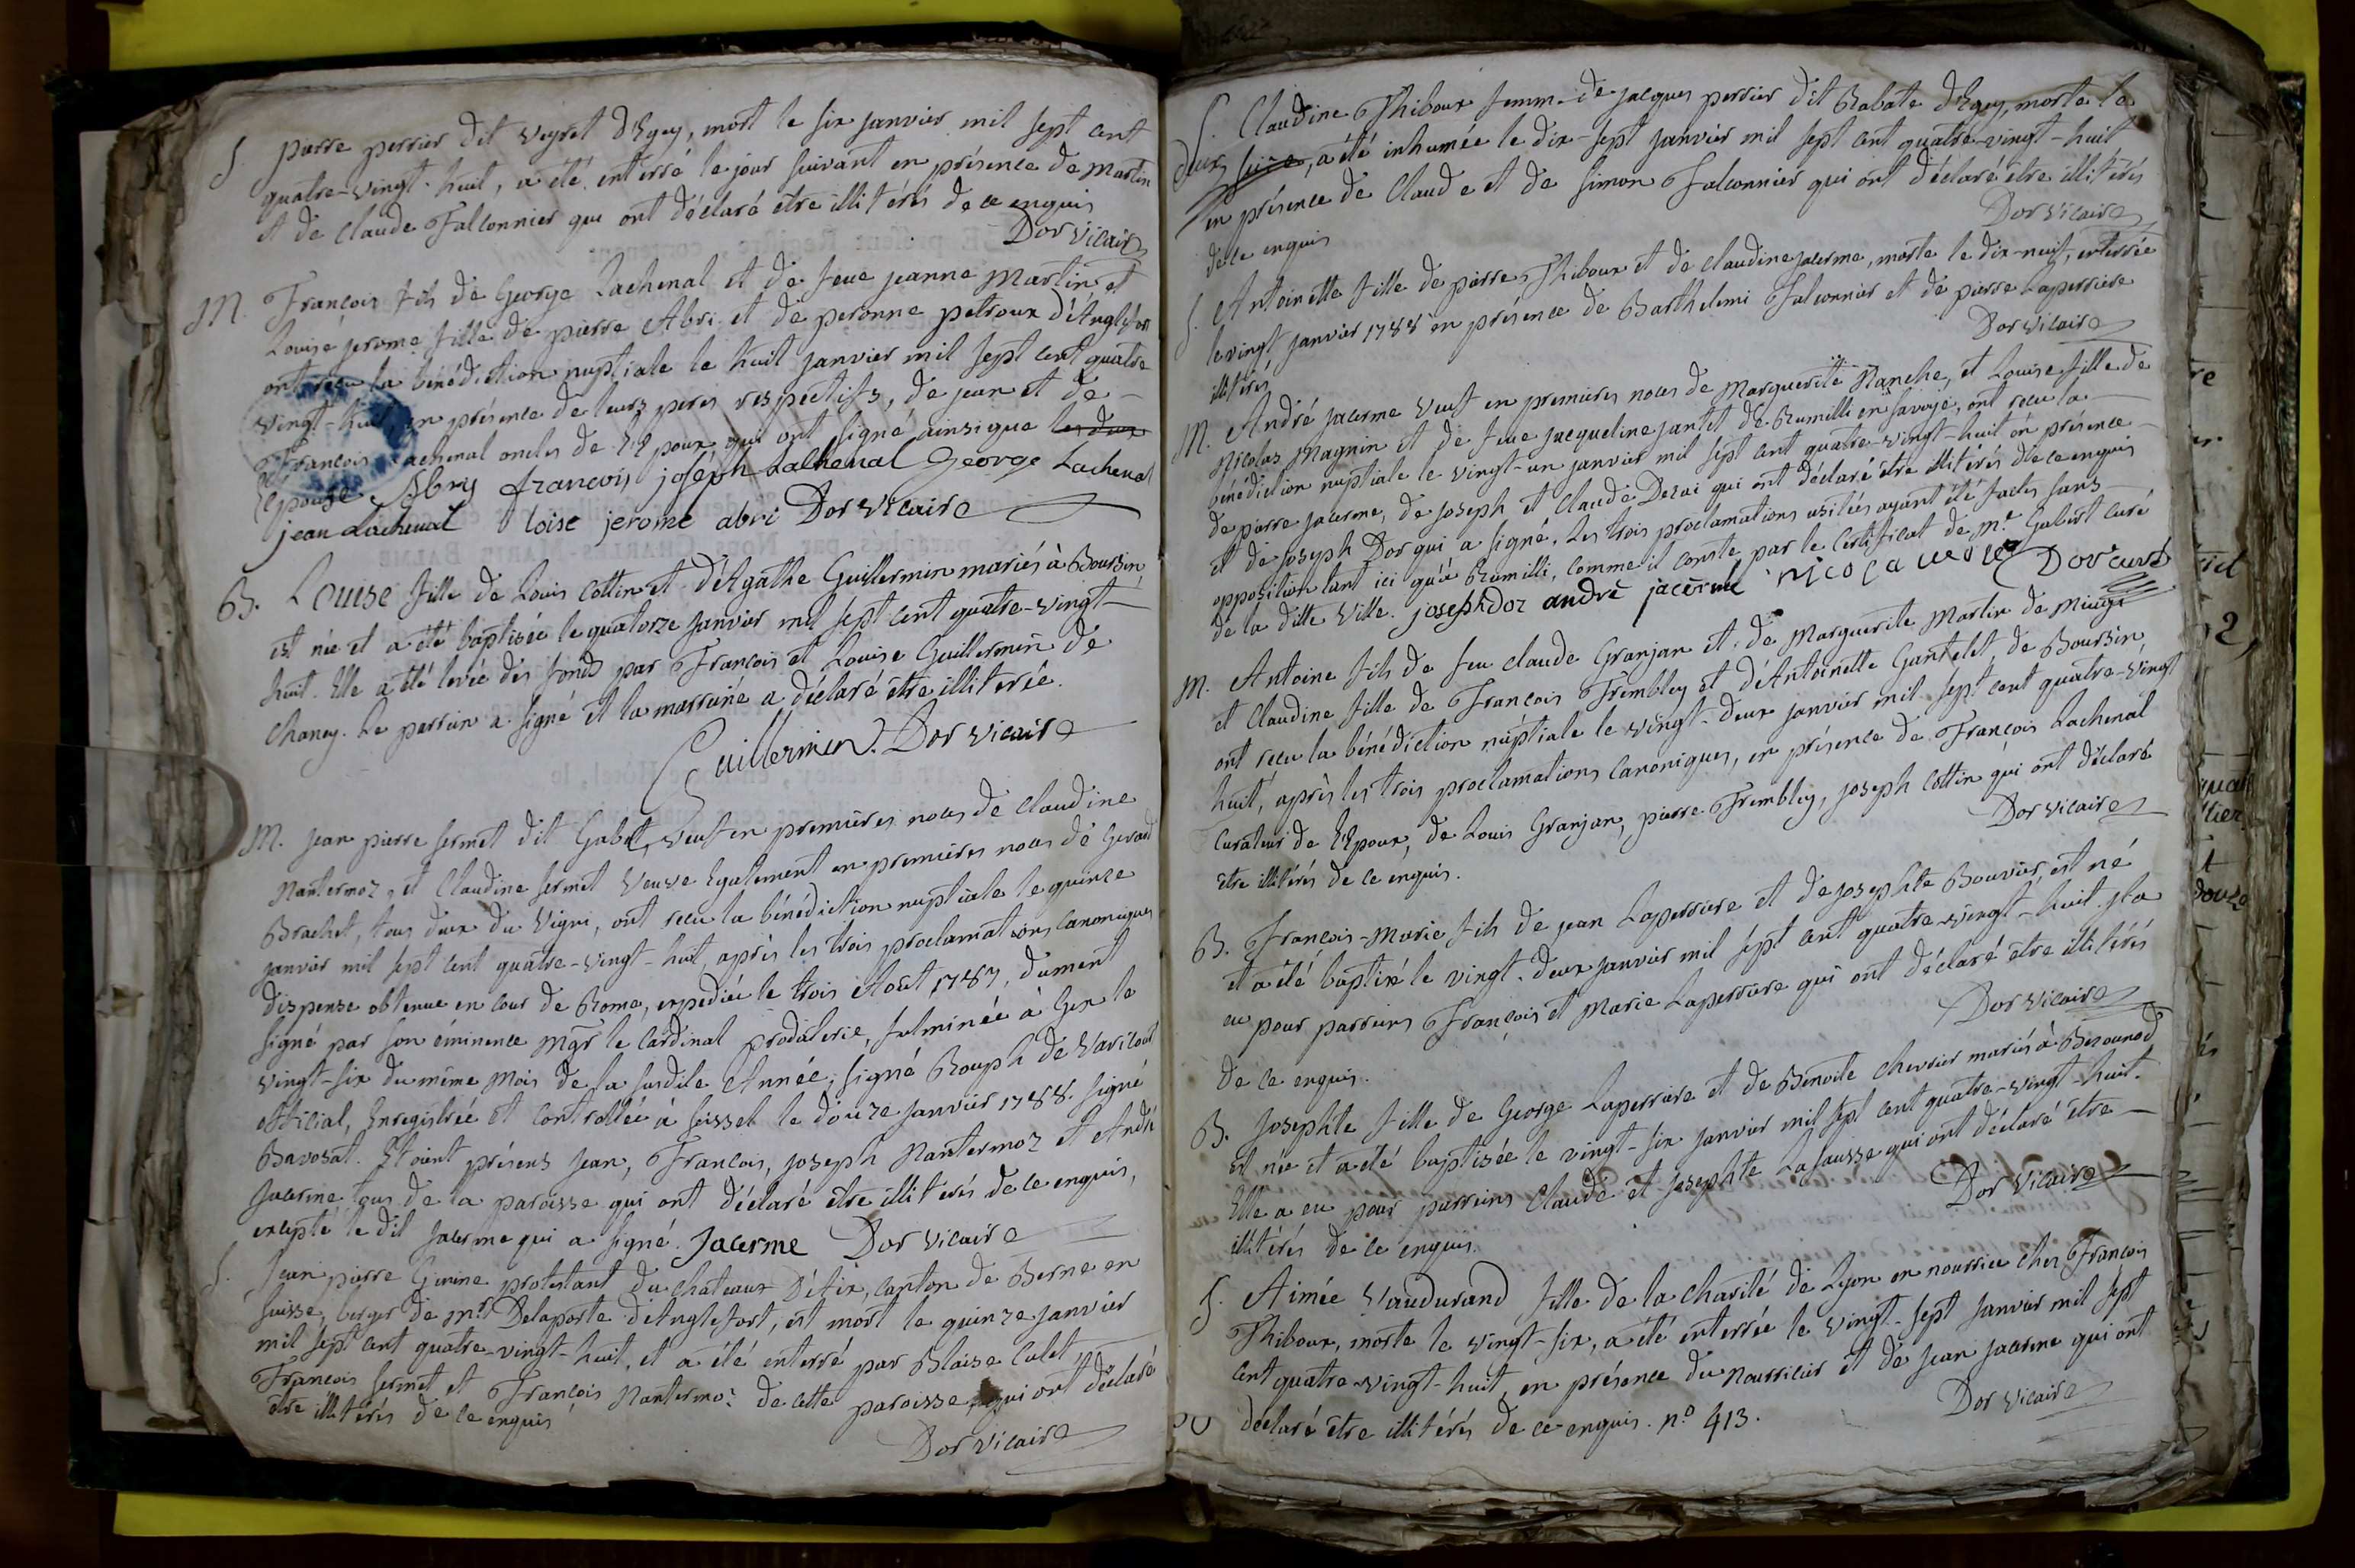 S. pierre perrier dit Veyret d'Egey, mort le six janvier mil sept cent
quatre-vingt-huit, a été enterré le jour suivant en présence de Martin
et de claude Falconnier qui ont déclaré être illitérés de ce enquis
Dor Vicaire
M. François fils de George Lachenal et de feue jeanne Martin et
Louise jerome fille de pierre Abri et de peronne petroux d'Anglefort
ont reçu la bénédiction nuptiale le huit janvier mil sept cent quatre
vingt-huit en présence de leurs peres respectifs, de jean et de
François Lachenal oncles de l'Epoux qui ont signé ainsi que les deux
l'épouse Abry françois joseph Lachenal George Lachenal
jean Lachenal loise jerome abri Dor vicaire
B. Louise fille de Louis Cottin et d'Agathe Guillermin mariés à Boursin
est née et a été baptisée le quatorze janvier mil sept cent quatre-vingt-
huit. Elle a été levée des fonds par François et Louise Guillermin de
Chaney. Le perrain a signé et la marraine a déclaré être illiterée.
Guillermin. Dor vicaire
M. jean pierre sermet dit Gabet, veuf en premières noces de claudine
Nantermoz, et Claudine sermet Veuve Egalement en premières noces de Gerard
Brachet, tous deux du Vigni, ont reçu la bénédiction nuptiale le quinze
janvier mil sept cent quatre-vingt-huit, après les trois proclamations canoniques
dispense obtenue en cour de Rome, expediée le trois Août 1787, dument
signé par son éminence Mgr le Cardinal prodaterie, fulminée à Gex le
vingt-six du même mois de la susdite Année, signé Rouph de Varicourt
official, Enregistrée et controllée à seissel le douze janvier 1788. signé
Bavozat. Etoient présens jean, François, joseph Nantermoz et André
jacerme tous de la paroisse qui ont déclaré être illiterés de ce enquis,
excepté le dit jacerme qui a signé. jacerme Dor Vicaire
S. jean pierre Genine protestant du chateaux D'étix, canton de Berne en
suisse, berger de Mr Delaporte d'Anglefort, est mort le quinze janvier
mil sept cent quatre-vingt-huit, et a été enterré par Blaise Culet,
François sermet et François Nantermoz de cette paroisse qui ont déclaré
être illitérés de ce enquis
Dor Vicaire
S. Claudine Thiboux femme de jacques perrier dit Babate d'Egey, morte le
seize, a été inhumée le dix-sept janvier mil sept cent quatre-vingt-huit
en présence de Claude et de simon Falconnier qui ont déclaré être illitérés
de ce enquis
Dor Vicaire
S. Antoinette fille de pierre Thiboux et de claudine jacerme, morte le dix-neuf, enterrée
le vingt janvier 1788 en présence de Barthelemi Falconnier et de pierre Laperriere
illitérés
Dor Vicaire
M. André jacerme veuf en premieres noces de Marguerite Planche, et Louise fille de
Nicolas Magnin et de feue jacqueline jantet de Rumilli en savoye, ont reçu la
bénédiction nuptiale le vingt-un janvier mil sept cent quatre-vingt-huit en présence
de pierre jacerme, de joseph et Claude Dezai qui ont déclaré être illitérés de ce enquis
et de joseph Dor qui a signé. Les trois proclamations usitées ayant été faites sans
opposition tant ici qu'à Rumilli, comme il conste par le certificat de Mr. Gabert curé
de la ditte ville. joseph dor andré jacerme Dor curé
M. Antoine fils de feu claude Granjan et de Marguerite Martin de
et Claudine fille de François Trembley et d'Antoinette Gantelet, de Boursin,
ont reçu la bénédiction nuptiale le vingt-deux janvier mil sept cent quatre-vingt
huit, après les trois proclamations canoniques, en présence de François Lachenal
Curateur de l'Epoux, de Louis Granjan, pierre Trembley, joseph Cottin qui ont déclaré
être illitérés de ce enquis.
Dor vicaire
B. François-Marie fils de jean Laperriere et de josephte Bouvier, est né
et a été baptisé le vingt-deux janvier mil sept cent quatre-vingt-huit. Il a
eu pour parrains François et Marie Laperriere qui ont déclaré être illitérés
de ce enquis.
Dor vicaire
B. josephte fille de George Laperriere et de Benoite Chevrier mariés à Bezounod
Est née et a été baptisée le vingt-six janvier mil sept cent quatre-vingt-huit.
Elle a eu pour parrains Claude et josephte Lafausse qui ont déclaré être
illitérés de ce enquis.
Dor vicaire
S. Aimée Vaudurand fille de la charité de Lyon en nourrice ches François
Thiboux, morte le vingt-six, a été enterrée le vingt-sept janvier mil sept
cent quatre-vingt-huit, en présence du nourricier et de jean jacerme qui ont
déclaré être illitérés de ce enquis. n° 413.
Dor vicaire